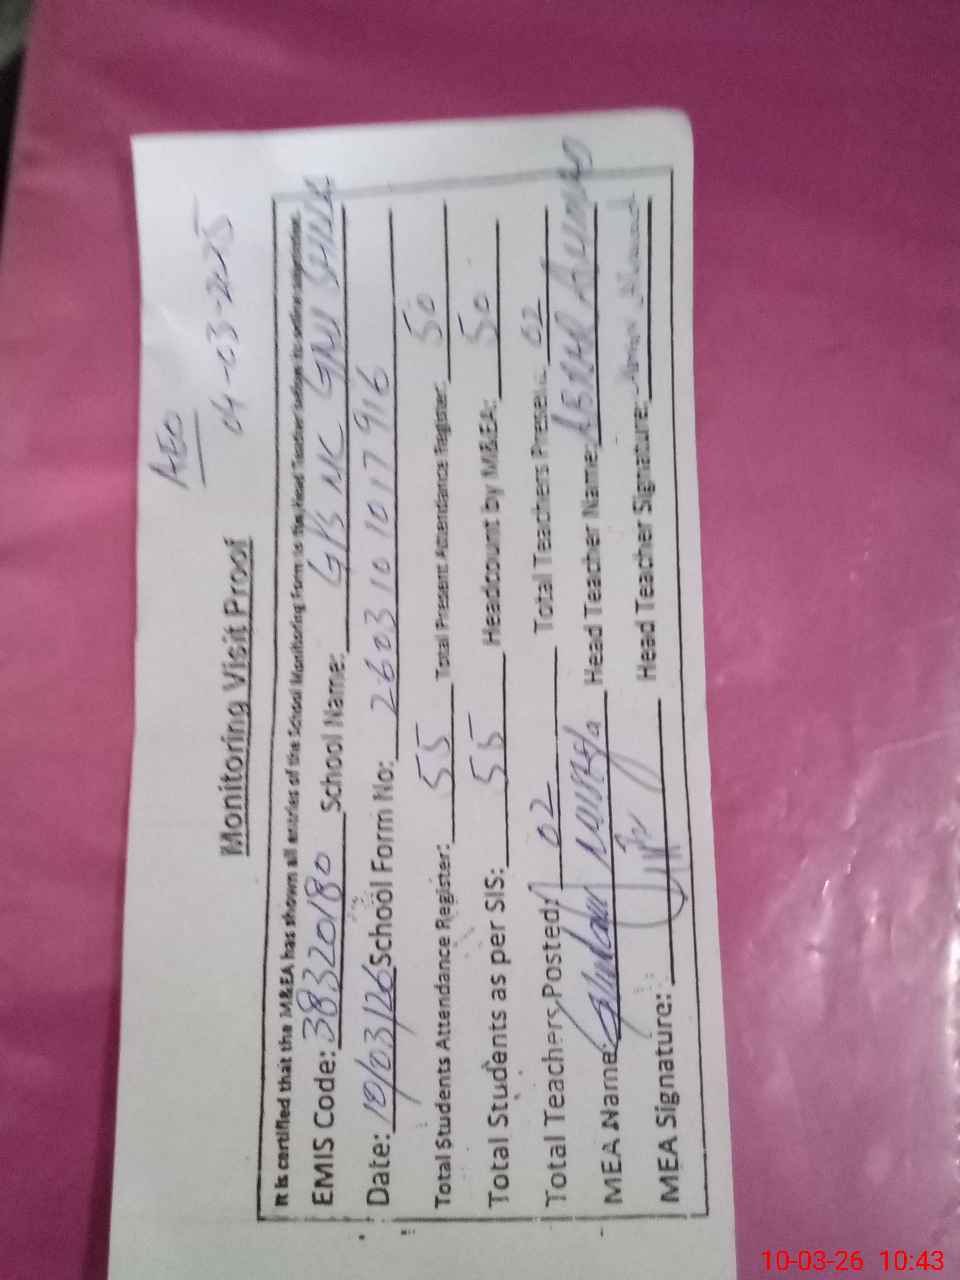 AEO
04-03-2025
Monitoring Visit Proof
It is certified that the M&EA has shown all entries of the School Monitoring Form to the Head Teacher before its online submission.
EMIS Code: 38320180 School Name: GPS NC
Date: 10/03/26 School Form No: 2603101017916
Total Students Attendance Register: 55 Total Present Attendance Register: 50
Total Students as per SIS: 55 Headcount by M&EA: 50
Total Teachers Posted: 02 Total Teachers Present: 02
MEA Name: Ghulam Head Teacher Name:
MEA Signature: Head Teacher Signature:
10-03-26 10:43